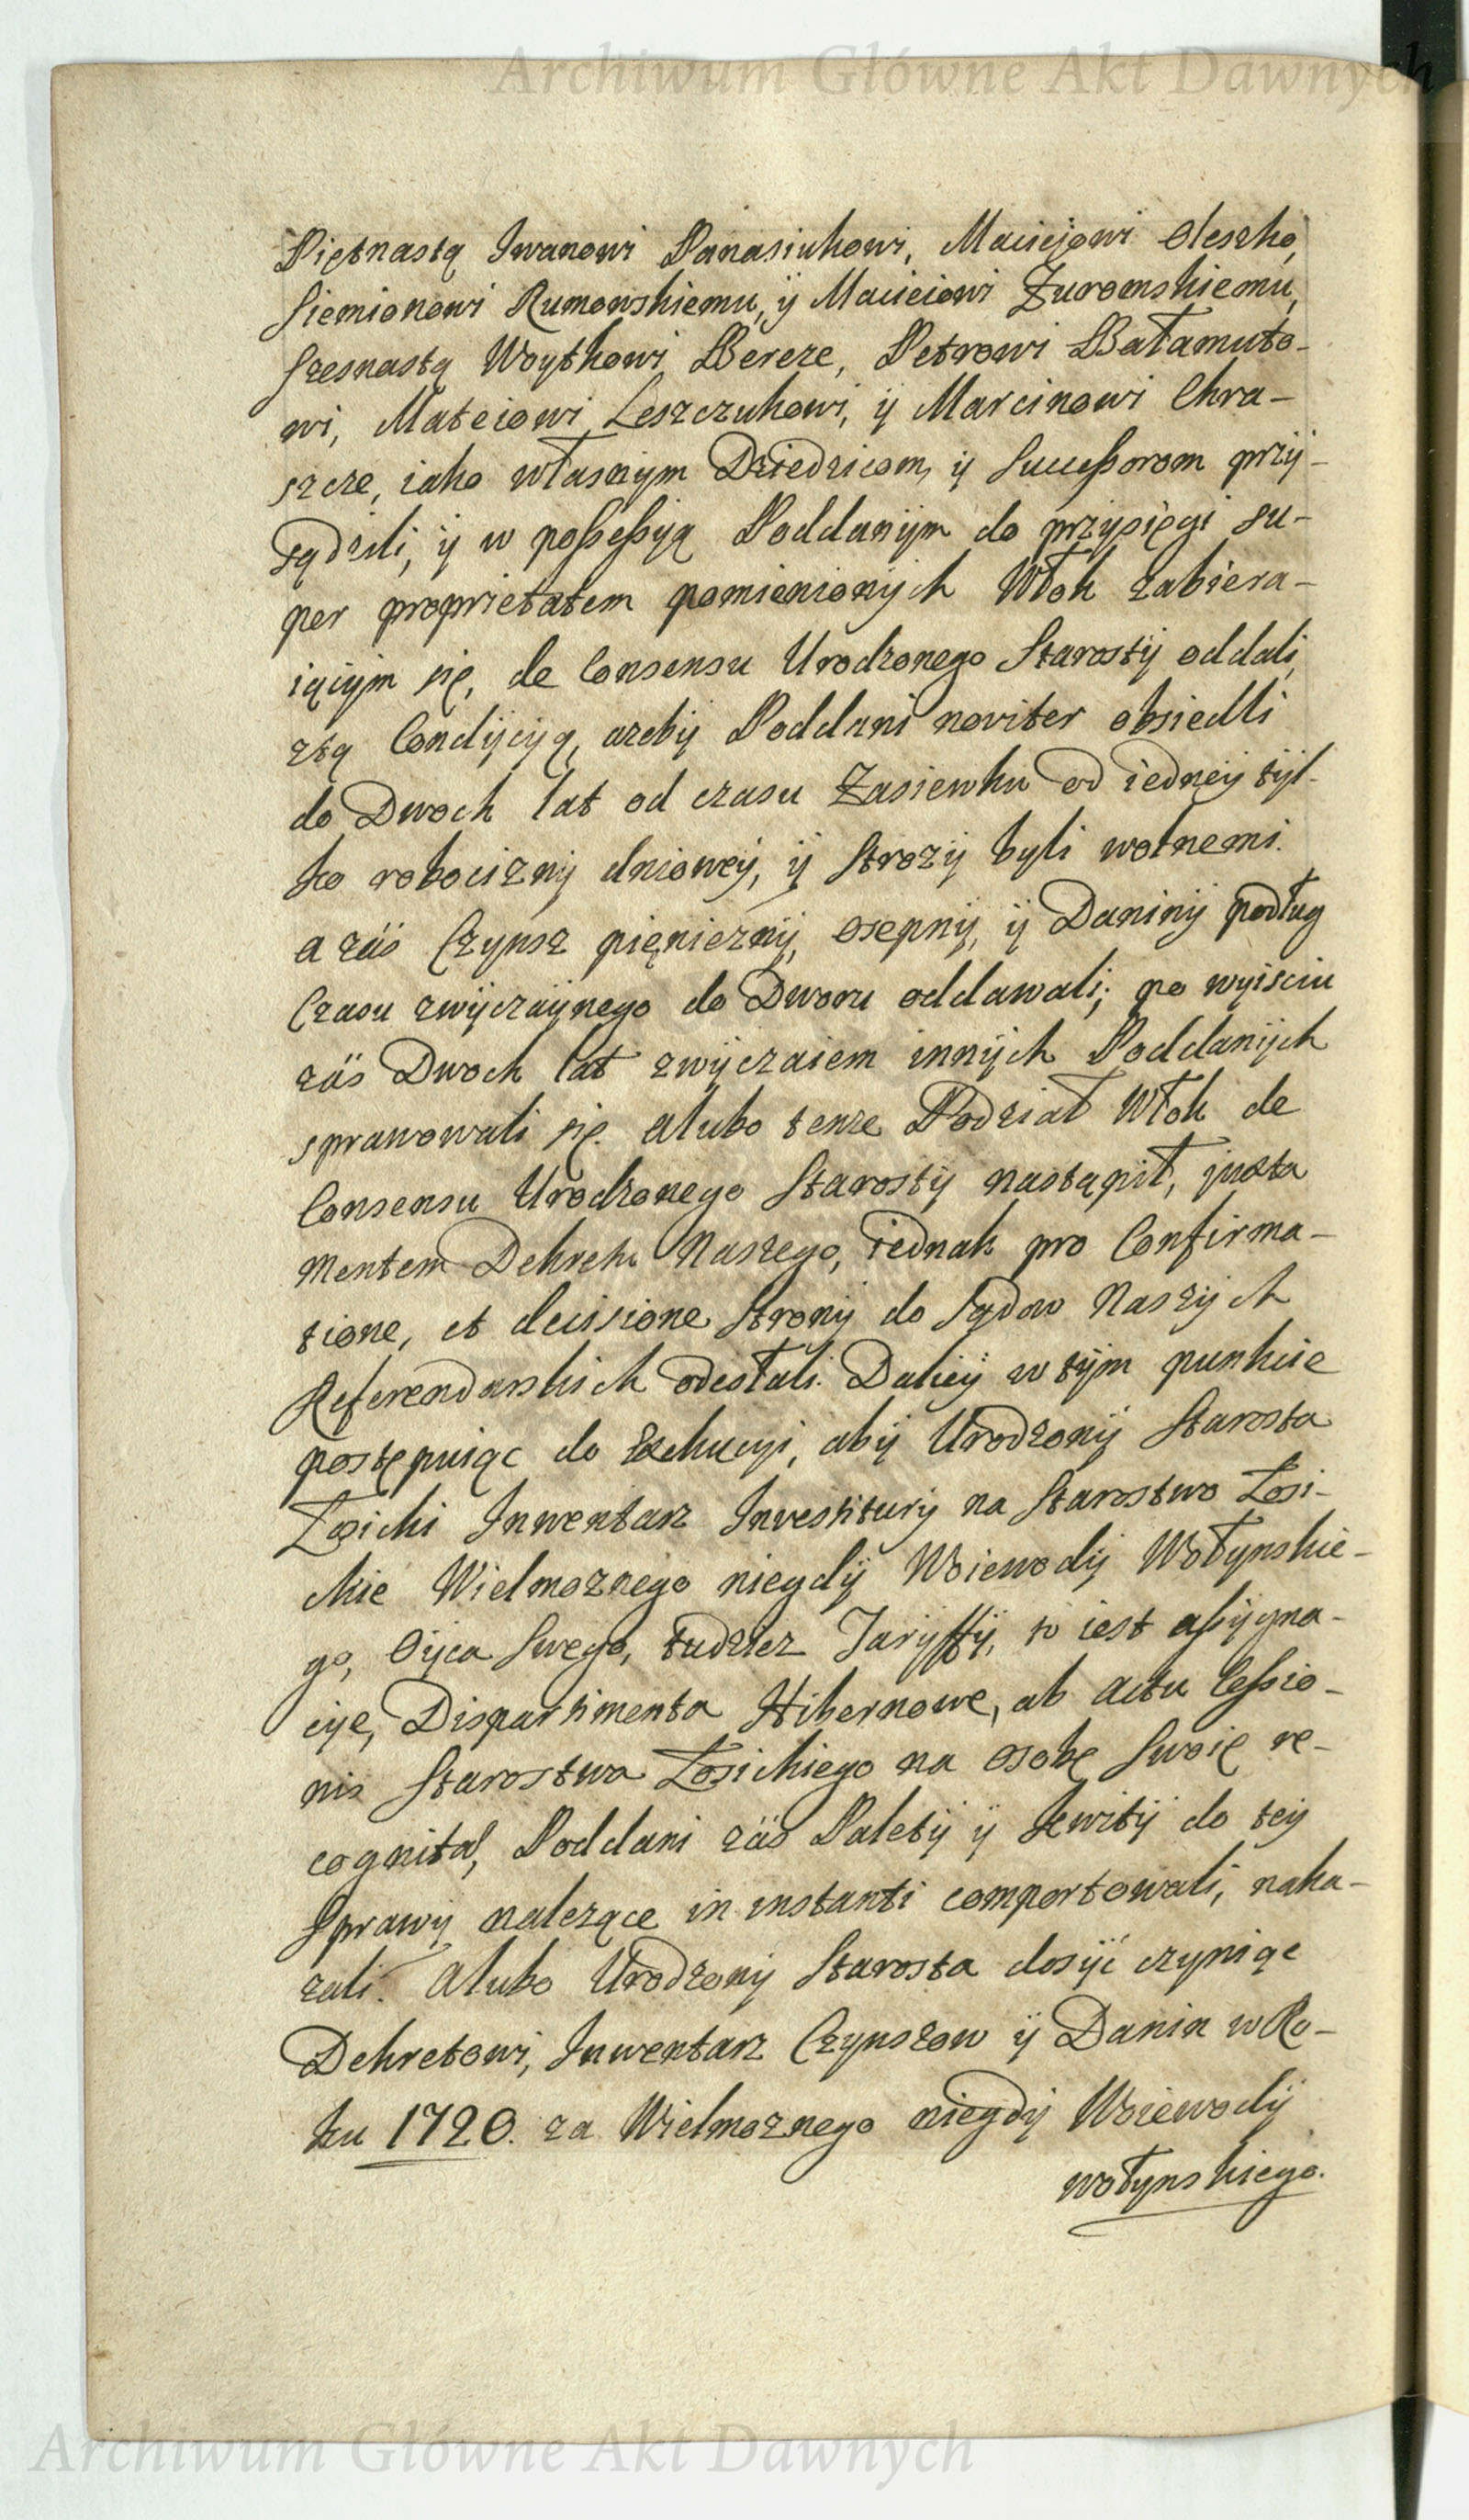 Archiwum Główne Akt Dawnych
Piętnastą Iwanowi Panasiukowi, Maciejowi Oleszko,
Siemionowi Rumowskiemu, ÿ Macieiowi Żuromskiemu,
Szesnastą Woytkowi Bereze, Petrowi Bałamuto-
wi, Mateiowi Leszczukowi, ÿ Marcinowi Chra-
szcze, iako własnÿm Dziedzicom, ÿ Sukceßorom prżÿ-
sądzili, ÿ w poßeßÿą Poddanÿm do przysięgi su-
per proprietatem pomienionÿch Włok zabiera-
iącÿm się, de Consensu Urodzonego Starostÿ oddali,
ztą Condÿcÿą, azebÿ Poddani noviter obsiedli
do Dwoch lat od czasu Zasiewku od iedneÿ tÿl-
ko robociznÿ dnioweÿ, ÿ Strozÿ byli wolnemi.
a zäs Czynsz pięnieznÿ, osepnÿ, ÿ Daninÿ podług
Czasu zwÿczaÿnego do Dworu oddawali; po wyisciu
zäs Dwoch lat zwÿczaiem innÿch Poddanÿch
sprawowali się. alubo tenze Podział Włok de
Consensu Urodzonego Starostÿ nastąpił, juxta
mentem Dekretu Naszego, iednak pro Confirma-
tione, et decisione Stronÿ do Sądow Naszÿch
Referendarskich odesłali. Daleÿ w tÿm punkcie
postępuiąc do Exekucyi, abÿ Urodzonÿ Starosta
Łosicki Inwentarz Investiturÿ na Starostwo Łosi-
ckie Wielmoznego niegdÿ Woiewodÿ Wołynskie-
go, Oÿca Swego, tudziez Tarÿffÿ, to iest aßÿgna-
cÿe, Dispartimenta Hibernowe, ab actu Ceßio-
nis Starostwa Łosickiego na osobę Swoię re-
cognita, Poddani zäs Paletÿ ÿ Kwitÿ do teÿ
Sprawÿ nalezące in instanti comportowali, naka-
zali. Alubo Urodzonÿ Starosta dosÿć czyniąc
Dekretowi, Inwentarz Czynszow ÿ Danin w Ro-
ku 1720. za Wielmoznego niegdÿ Woiewodÿ
wołynskiego.
Archiwum Główne Akt Dawnych